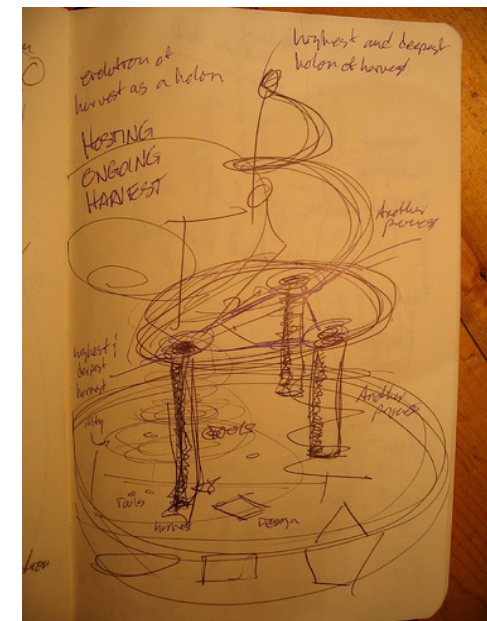 evolution of
harvest as a holon
highest and deepest
holon of harvest
HOSTING
ONGOING
HARVEST
Another
process
highest &
deepest
harvest
Another
process
TOOLS
Tools
harvest
DESIGN